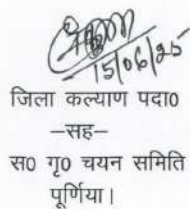 15/06/25
जिला कल्याण पदा0
–सह–
स0 गृ0 चयन समिति
पूर्णिया।